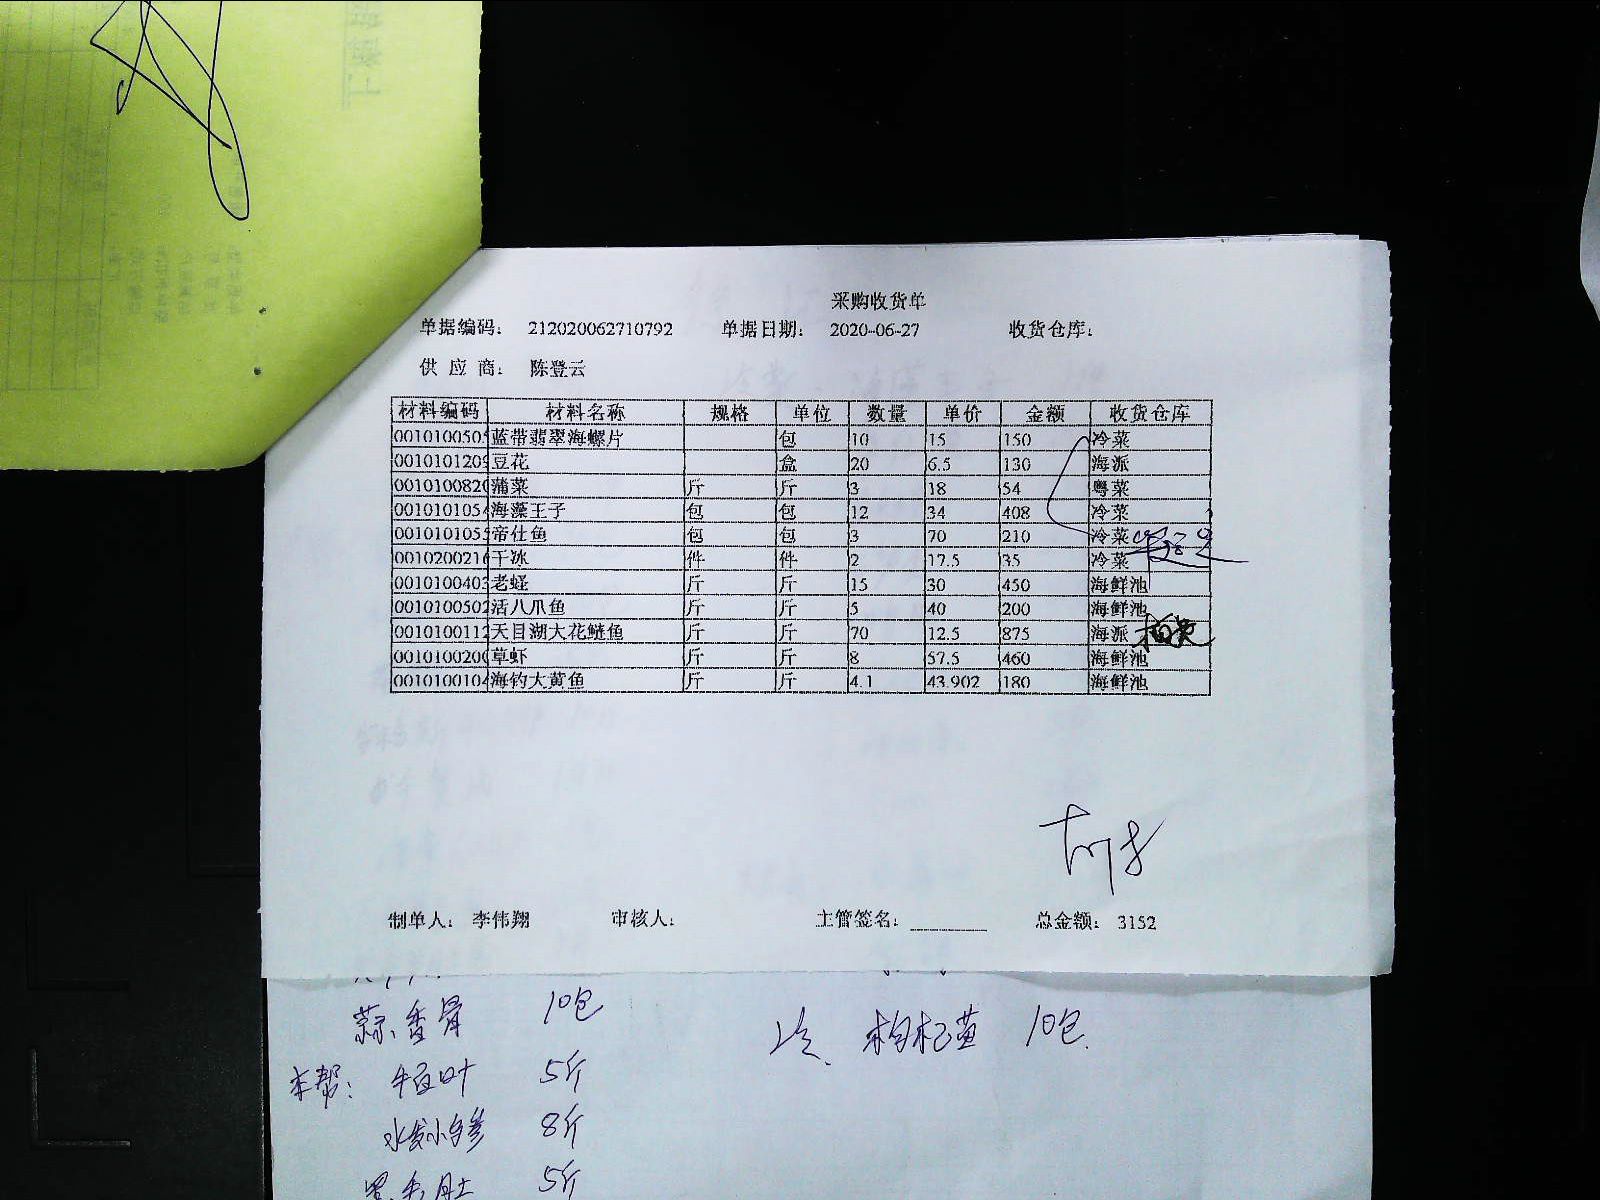 采购收货单
单据编码: 212020062710792 单据日期: 2020-06-27 收货仓库:
供应商: 陈登云
材料编码 材料名称 规格 单位 数量 单价 金额 收货仓库
0010100505 蓝带翡翠海螺片 包 10 15 150 冷菜
0010101209 豆花 盒 20 6.5 130 海派
0010100820 蒲菜 斤 斤 3 18 54 粤菜
001010105 海藻王子 包 包 12 34 408 冷菜
001010105 帝仕鱼 包 包 3 70 210 冷菜
001020021 干冰 件 件 2 17.5 35 冷菜
0010100403 老蛏 斤 斤 15 30 450 海鲜池
0010100502 活八爪鱼 斤 斤 5 40 200 海鲜池
001010011 天目湖大花鲢鱼 斤 斤 70 12.5 875 海派
0010100200 草虾 斤 斤 8 57.5 460 海鲜池
001010010 海钓大黄鱼 斤 斤 4.1 43.902 180 海鲜池
制单人: 李伟翔 审核人: 主管签名: 总金额: 3152
蒜香骨 10包
冷 枸杞苗 10包
本帮: 5斤
水发小乌参 8斤
5斤